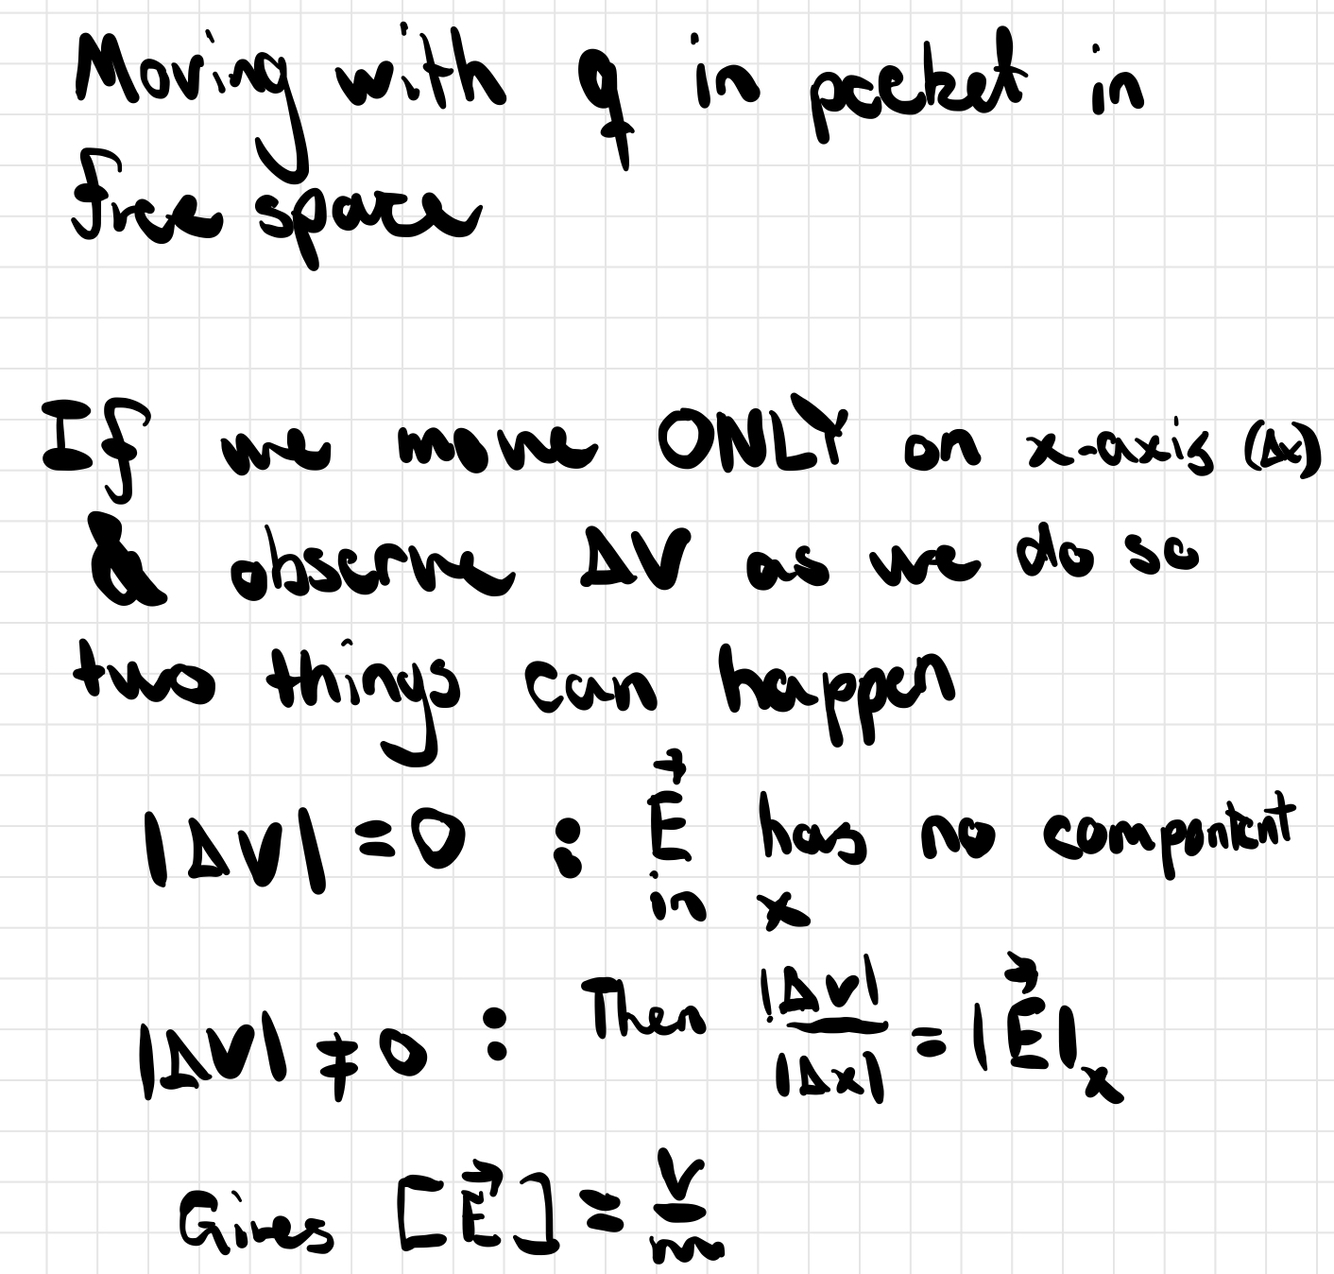 Moving with q in pocket in
free space
If we move ONLY on x-axis (Δx)
& observe ΔV as we do so
two things can happen
|ΔV| = 0 : E⃗ has no component
in x
|ΔV| ≠ 0 : Then |ΔV| / |Δx| = |E⃗|ₓ
Gives [E⃗] = V/m